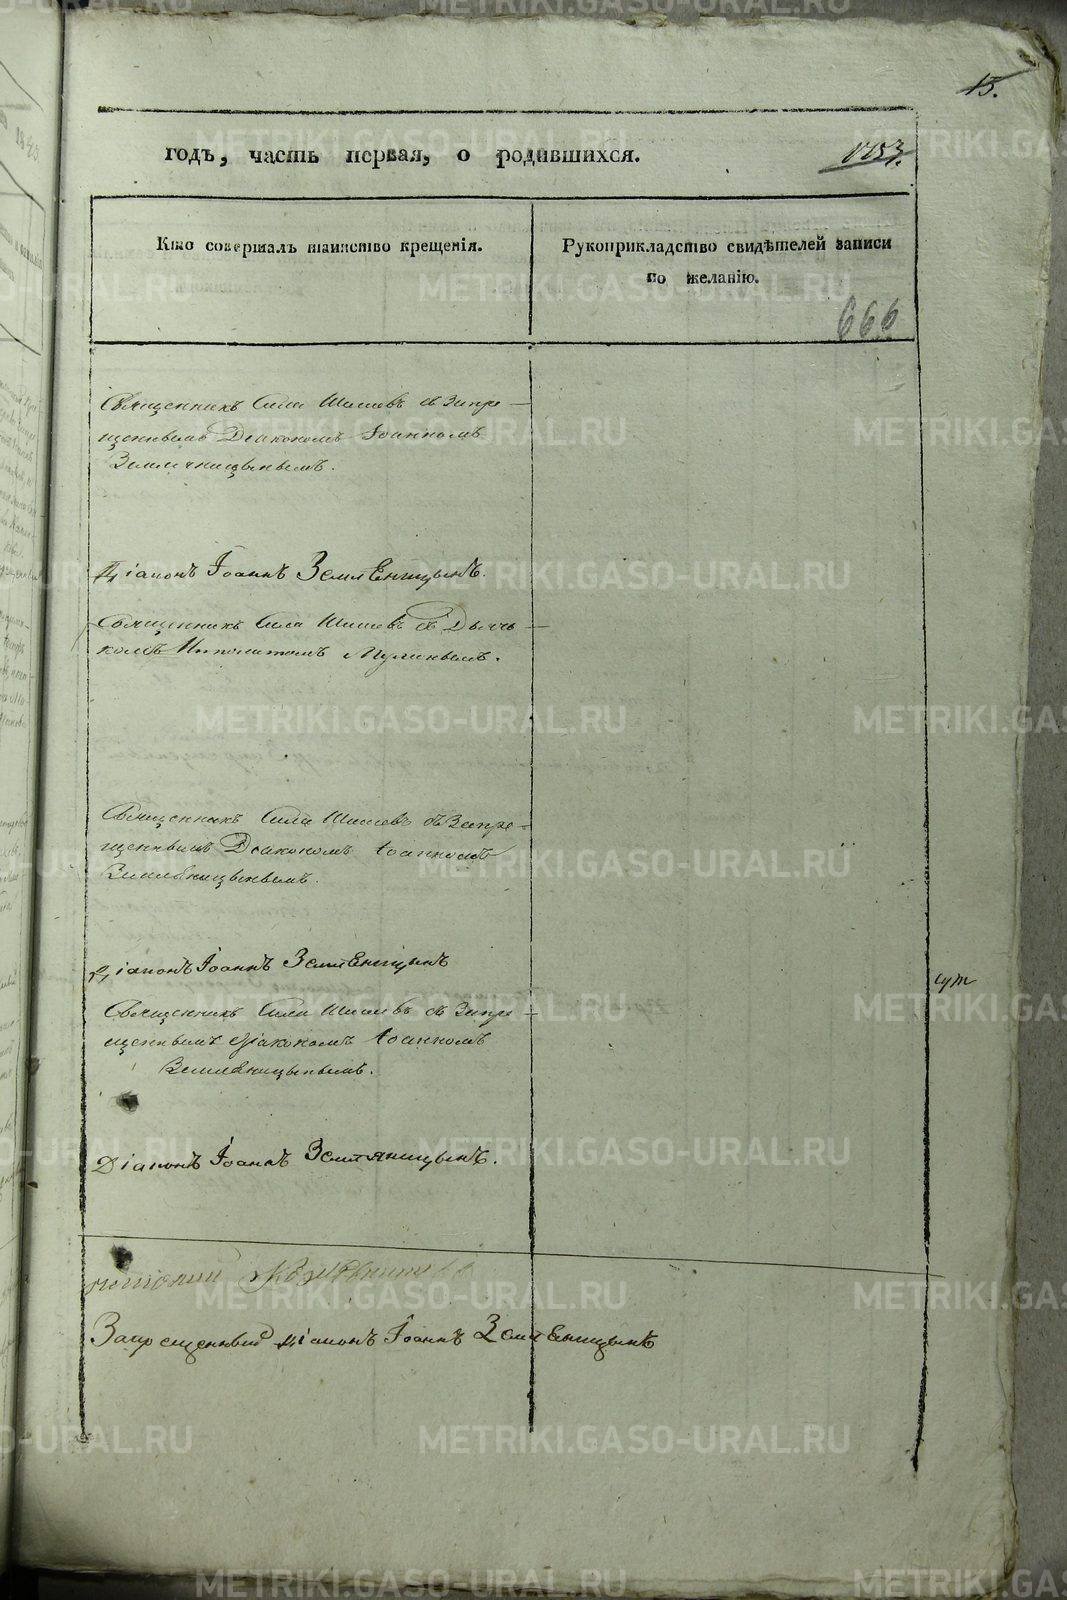 15.
годъ, часть первая, о родившихся.
1153.
Кто совершалъ таинство крещенія.
Рукоприкладство свидѣтелей записи
по желанію.
666
Священникъ Сила Шишевъ съ Запре-
щеннымъ Діакономъ Іоанномъ
Земляницынымъ.
Діаконъ Іоаннъ Земляницынъ.
Священникъ Сила Шишевъ съ Дьячь-
комъ Ипполитомъ
Священникъ Сила Шишевъ съ Запре-
щеннымъ Діакономъ Іоанномъ
Земляницынымъ.
Діаконъ Іоаннъ Земляницынъ
Священникъ Сила Шишевъ съ Запре-
щеннымъ Діакономъ Іоанномъ
Земляницынымъ.
Діаконъ Іоаннъ Земляницынъ.
Запрещенный Діаконъ Іоаннъ Земляницынъ
METRIKI.GASO-URAL.RU